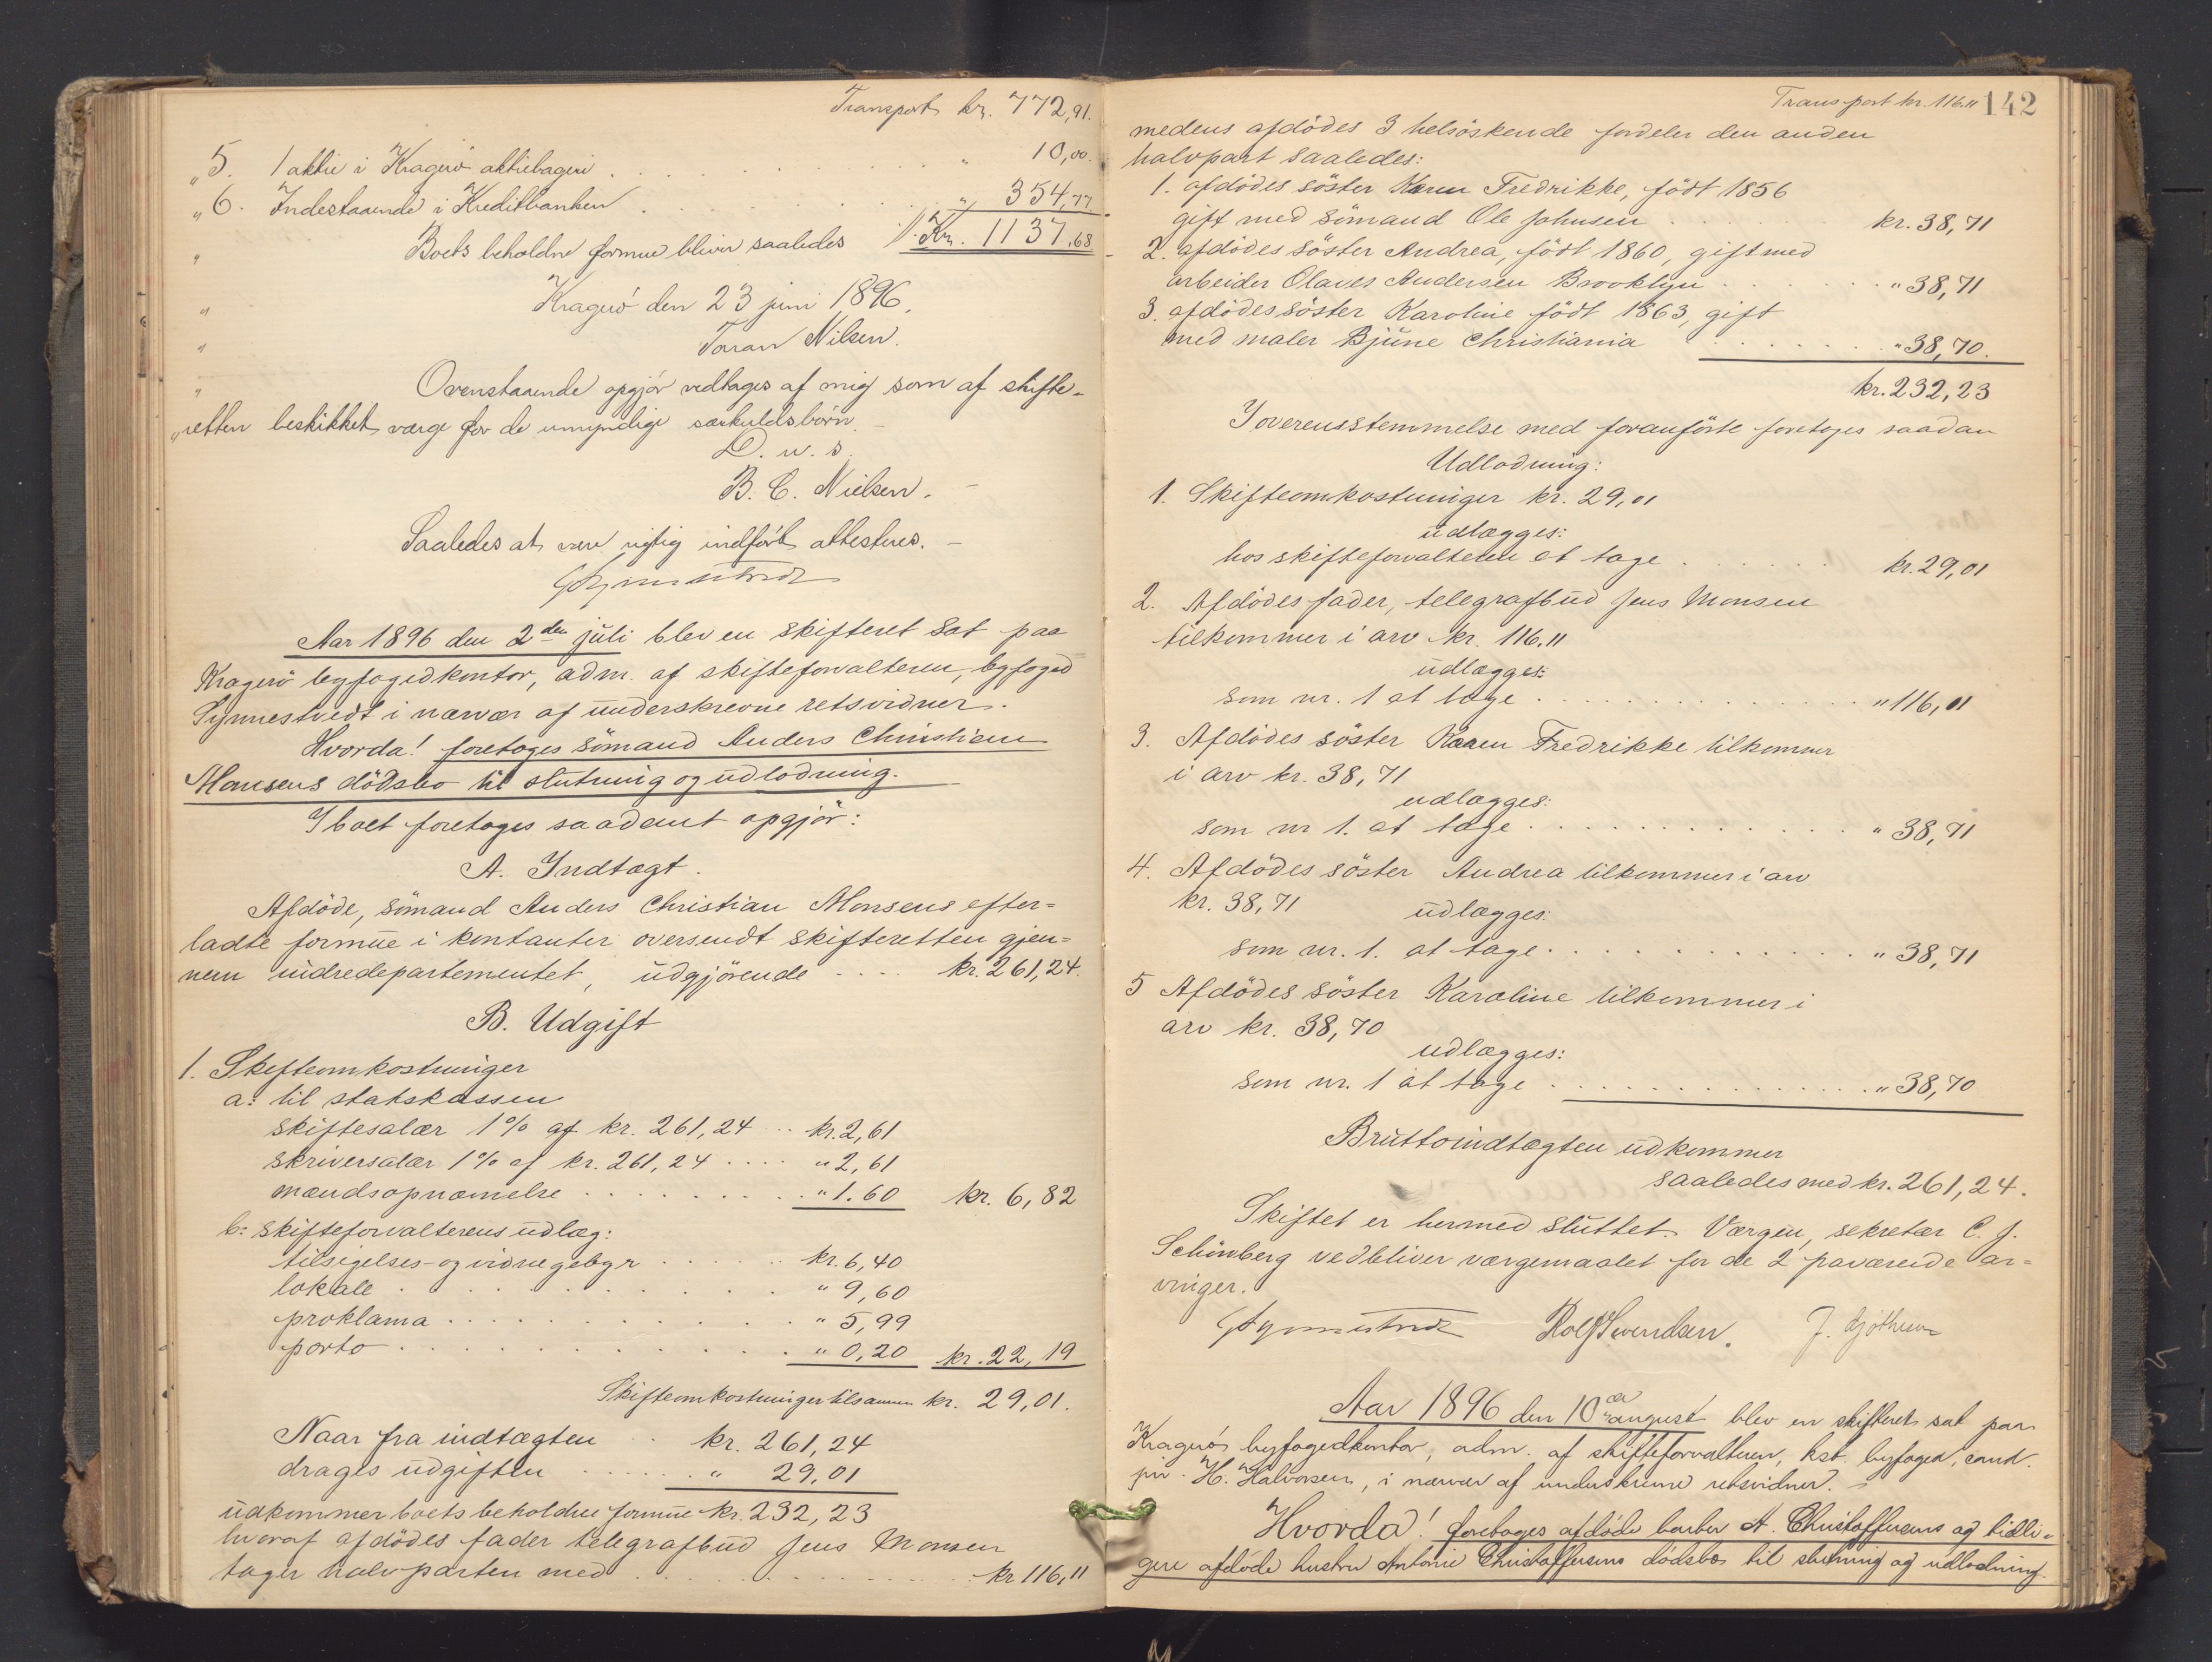 Transport kr. 772,91.
„ 5. 1 aktie i Kragerö aktiebageri . . . . „ 10,00.
„ 6. Indestaaende i Kreditbanken . . . . „ 354,77
„ Boets beholdne formue bliver saaledes Kr. 1137,68
„ Kragerö den 23 juni 1896.
„ Taran Nilsen.
„ Ovenstaaende opgjör vedtages af mig som af skifte-
„ retten beskikket værge for de umyndige særkuldsbörn. -
D. u. s.
B. C. Nielsen. -
Saaledes at være rigtig indfört attesteres. -
Synnestvedt
Aar 1896 den 2den juli blev en skifteret sat paa
Kragerö byfogedkontor, adm. af skifteforvalteren, byfoged
Synnestvedt i nærvær af underskrevne retsvidner.
Hvorda! foretoges sömand Anders Christian
Monsens dödsbo til slutning og udlodning.
I boet foretoges saadant opgjör:
A. Indtægt.
Afdöde, sömand Anders Christian Monsens efter=
ladte formue i kontanter oversendt skifteretten gjen=
nem indredepartementet, udgjörende . . . kr. 261,24.
B. Udgift
1. Skifteomkostninger
a: til statskassen
skiftesalær 1% af kr. 261,24 . . kr. 2,61
skriversalær 1% af kr. 261,24 . . . . „ 2,61
mandsopnævnelse . . . . „ 1.60 kr. 6,82
b: skifteforvalterens udlæg:
tilsigelses- og vidnegebyr . . . . kr. 6,40
lokale . . . . „ 9,60
proklama . . . . „ 5,99
porto . . . . „ 0,20 kr. 22,19
Skifteomkostninger tilsammen kr. 29,01.
Naar fra indtægten . . kr. 261,24
drages udgiften . . . . „ 29,01
udkommer boets beholdne formue kr. 232,23
hvoraf afdödes fader telegrafbud Jens Monsen
tager halvparten med . . . . kr 116,11
Transport kr. 116.11 142
medens afdödes 3 helsöskende fordeler den anden
halvpart saaledes:
1. afdödes söster Karen Fredrikke, födt 1856
gift med sömand Ole Johnsen . . . . kr. 38,71
2. afdödes söster Andrea, födt 1860, gift med
arbeider Olaves Andersen Brooklyn . . . . „ 38,71
3. afdödes söster Karoline födt 1863, gift
med maler Bjune Christiania . . . . „ 38,70.
kr. 232,23
I overensstemmelse med foranförte foretoges saadan
Udlodning:
1. Skifteomkostninger kr. 29,01
udlægges:
hos skifteforvalteren at tage . . . . kr. 29,01
2. Afdödes fader, telegrafbud Jens Monsen
tilkommer i arv kr. 116.11
udlægges:
som nr. 1 at tage . . . . „ 116,11
3. Afdödes söster Karen Fredrikke tilkommer
i arv kr. 38,71
udlægges:
som nr 1. at tage . . . . „ 38,71
4. Afdödes söster Andrea tilkommer i arv
kr. 38,71 udlægges:
som nr. 1. at tage . . . . „ 38,71
5 Afdödes söster Karoline tilkommer i
arv kr. 38,70
udlægges:
som nr. 1 at tage . . . . „ 38,70
Bruttoindtægten udkommer
saaledes med kr. 261,24.
Skiftet er hermed sluttet. Værgen, sekretær C. J.
Schönberg vedbliver værgemaalet for de 2 fraværende ar=
vinger.
Synnestvedt Rolf Svendsen. J.
Aar 1896 den 10de august blev en skifteret sat paa
Kragerö byfogedkontor, adm. af skifteforvalteren, kst. byfoged, cand.
jur. H. Halvorsen, i nærvær af underskrevne retsvidner. -
Hvorda! foretoges afdöde barber A. Christoffersens og tidli-
gere afdöde hustru Antonie Christoffersens dödsbo til slutning og udlodning.